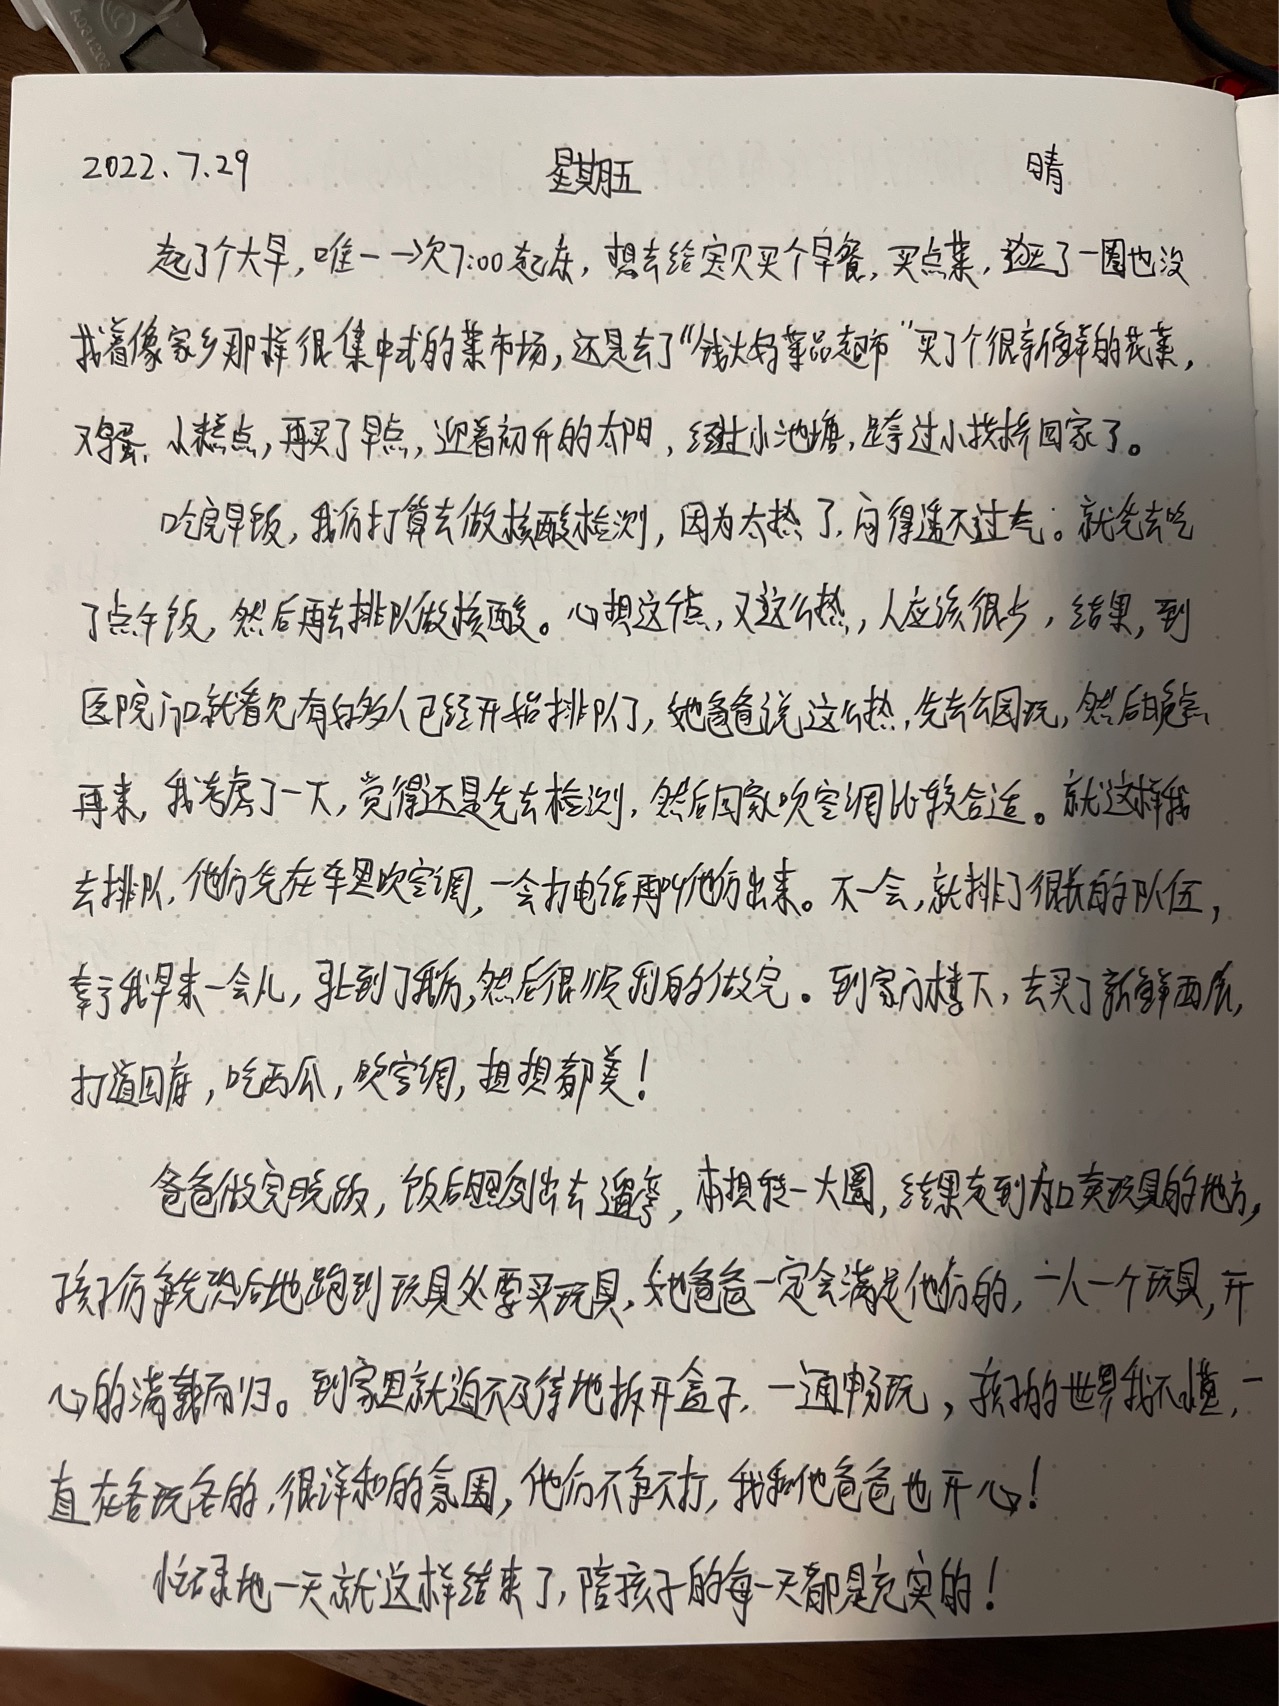 2022.7.29 星期五 晴
起了个大早,唯一一次7:00起床,想去给宝贝买个早餐,买点菜,逛了一圈也没
找着像家乡那样很集中式的菜市场,还是去了“钱大妈菜品超市”买了个很新鲜的花菜,
鸡蛋、小糕点,再买了早点,迎着初升的太阳,经过小池塘,跨过小拱桥回家了。
吃完早饭,我们打算去做核酸检测,因为太热了,闷得透不过气。就先去吃
了点午饭,然后再去排队做核酸。心想这个点,又这么热,人应该很少,结果,到
医院门口就看见有好多人已经开始排队了,她爸爸说这么热,先去公园玩,然后晚点
再来,我考虑了一下,觉得还是先去检测,然后回家吹空调比较合适。就这样我
去排队,他们先在车里吹空调,一会打电话再叫他们出来。不一会,就排了很长的队伍,
幸亏我早来一会儿,马上到了我们,然后很顺利的做完。到家门楼下,去买了新鲜西瓜,
打道回府,吃西瓜,吹空调,想想都美!
爸爸做完晚饭,饭后照例出去遛弯,本想转一大圈,结果走到门口卖玩具的地方,
孩子们争先恐后地跑到玩具处要买玩具,她爸爸一定会满足他们的,一人一个玩具,开
心的满载而归。到家里就迫不及待地拆开盒子,一通畅玩,孩子的世界我不懂,一
直在各玩各的,很详和的氛围,他们不争不打,我和他爸爸也开心!
忙碌地一天就这样结束了,陪孩子的每一天都是充实的!